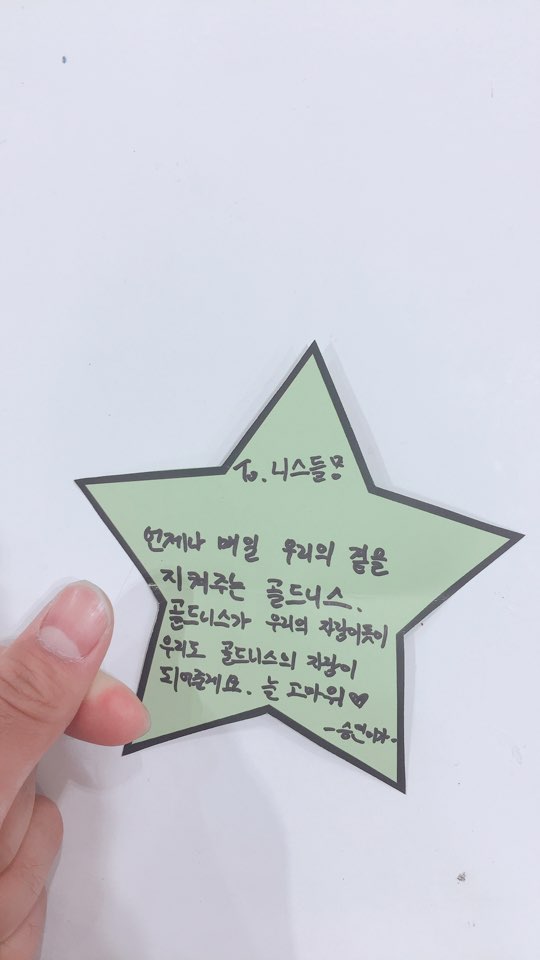 To. 니스들
언제나 매일 우리의 곁을
지켜주는 골드니스.
골드니스가 우리의 자랑이듯이
우리도 골드니스의 자랑이
되어줄게요. 늘 고마워♥
-승연이가-